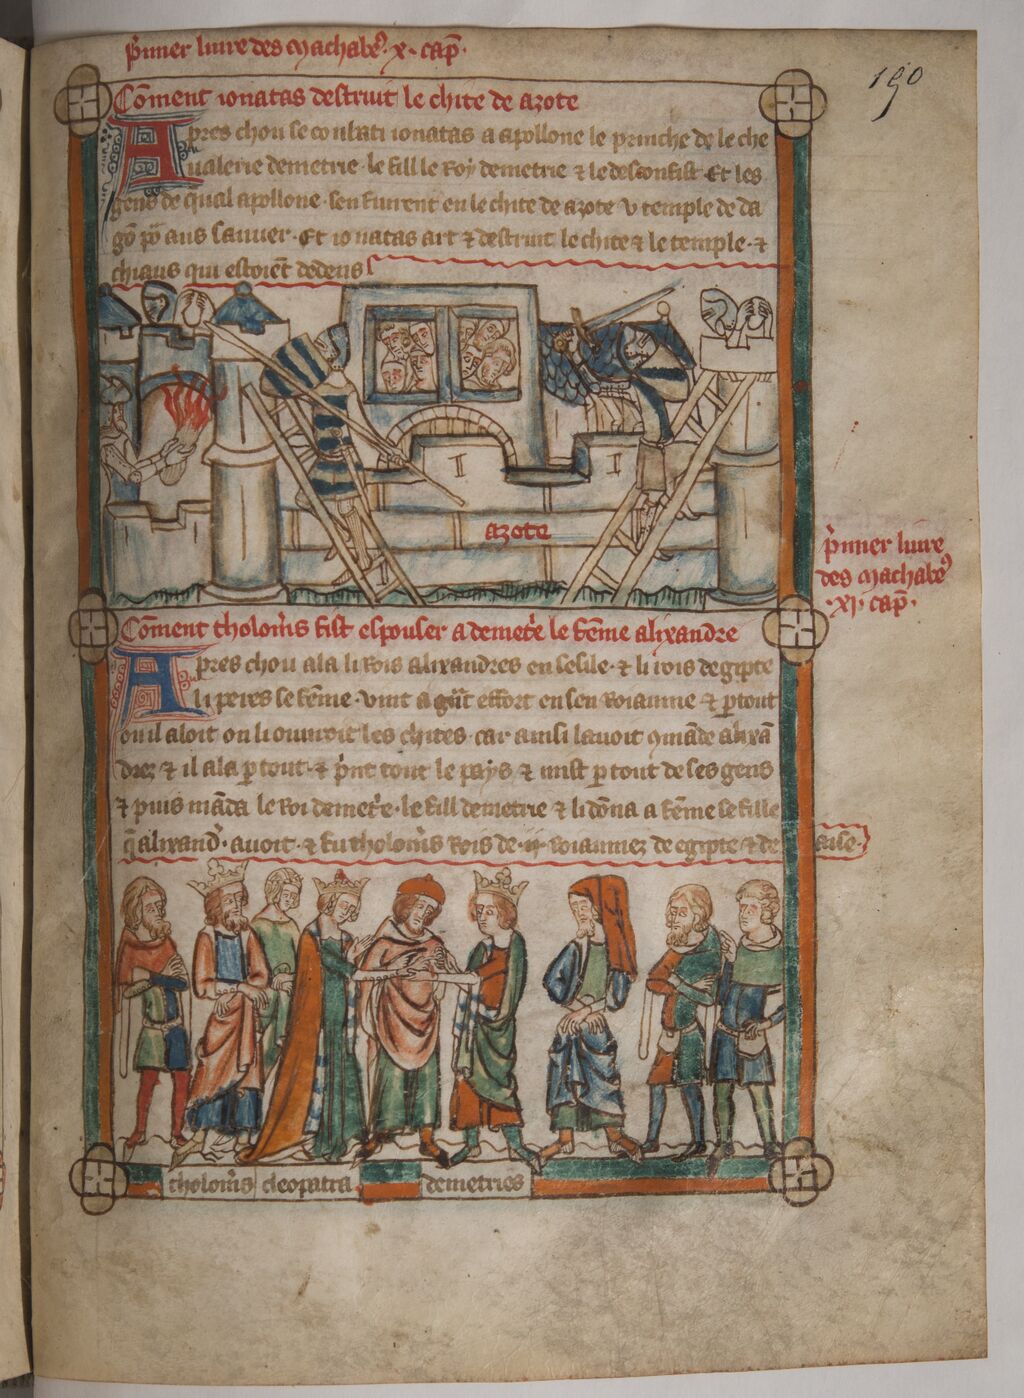 p̓mer liure des machabe᷒ .x. cap̄.
190
Cōment ionatas destruit le chite de azote
Apres chou se conbati ionatas a apollone le prinche de le che
ualerie demetrie . le fill le roy demetrie ⁊ le desconfist . Et les
gens de qual apollone . sen furent en le chite de azote v temple de da
gō po᷒ aus sauuer . Et ionatas art ⁊ destruit le chite ⁊ le temple . ⁊
chiaus qui estoiēt dedens
azote
p̓mer liure
des machabe᷒
.xi. cap̄.
Cōment tholom̄s fist espouser a demet̓e le fēme alixandre
Apres chou ala li rois alixandres en sesile . ⁊ li rois degipte
li peres se fēme . vint a g̓nt effort en sen roiaume ⁊ ꝑtout
ou il aloit on li ouuroit les chites . car ainsi lauoit ꝯmāde alixā
drez ⁊ il ala ꝑ tout . ⁊ p̓nt tout le pays ⁊ mist ꝑ tout de ses gens
⁊ puis māda le roi demet̓e . le fill demetrie ⁊ li dōna a fēme se fille
q̄ alixand̓ . auoit . ⁊ fu tholom̄s rois de .ij. roiaumez de egipte ⁊ de aise .
tholom̄s cleopatra demetries